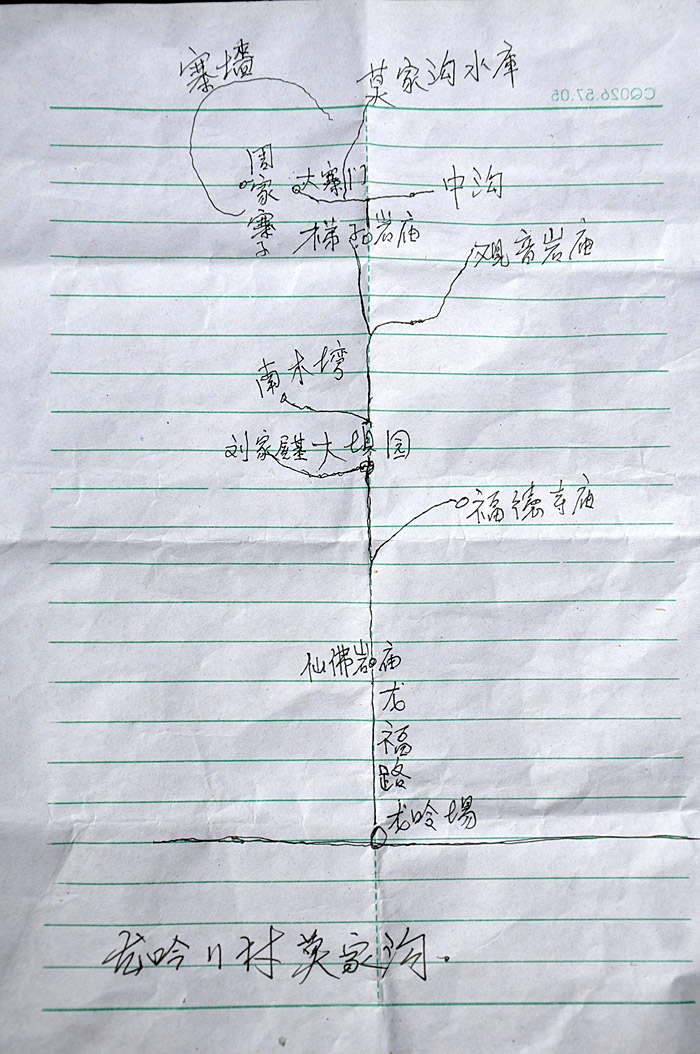 寨墙
莫家沟水库
CQ026.57.05
周家寨子
大寨门
中沟
梯子岩庙
观音岩庙
南木塆
刘家屋基
大埧园
福德寺庙
仙佛岩庙
龙福路
龙吟場
龙吟 村莫家沟.